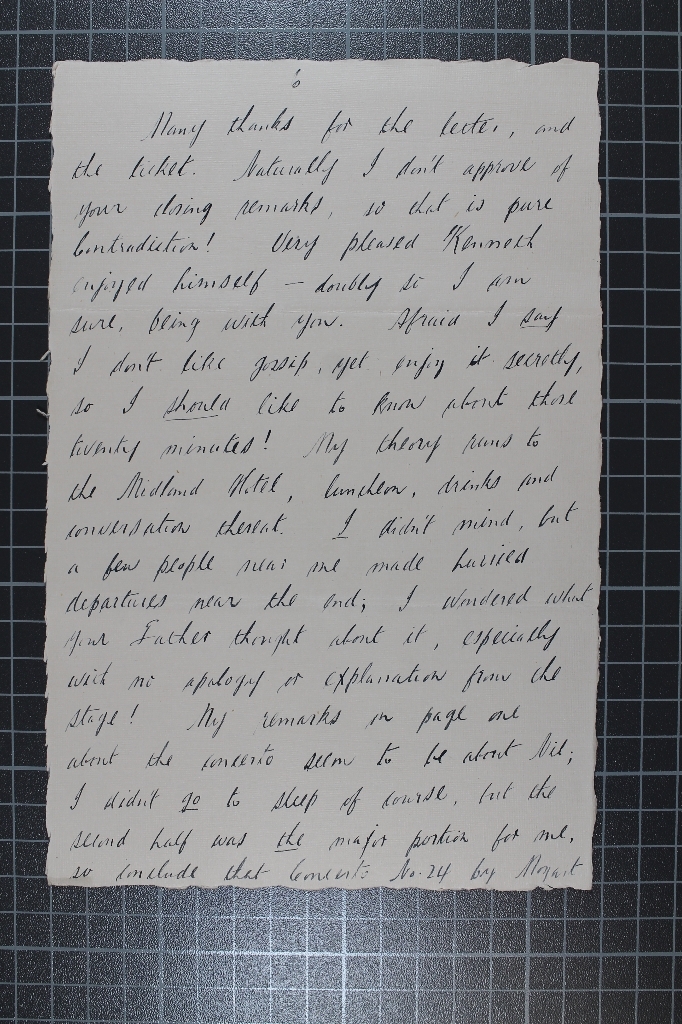 Many thanks for the letter, and
the ticket. Naturally I don't approve of
your closing remarks, so that is pure
Contradiction! Very pleased Kenneth
enjoyed himself — doubly so I am
sure, being with you. Afraid I say
I don't like gossip, yet enjoy it secretly,
so I should like to know about those
twenty minutes! My theory runs to
the Midland Hotel, luncheon, drinks and
conversation thereat. I didn't mind, but
a few people near me made hurried
departures near the end; I wondered what
your Father thought about it, especially
with no apology or explanation from the
stage! My remarks on page one
about the concerto seem to be about Nil;
I didn't go to sleep of course, but the
second half was the major portion for me,
so conclude that Concerto No. 24 by Mozart